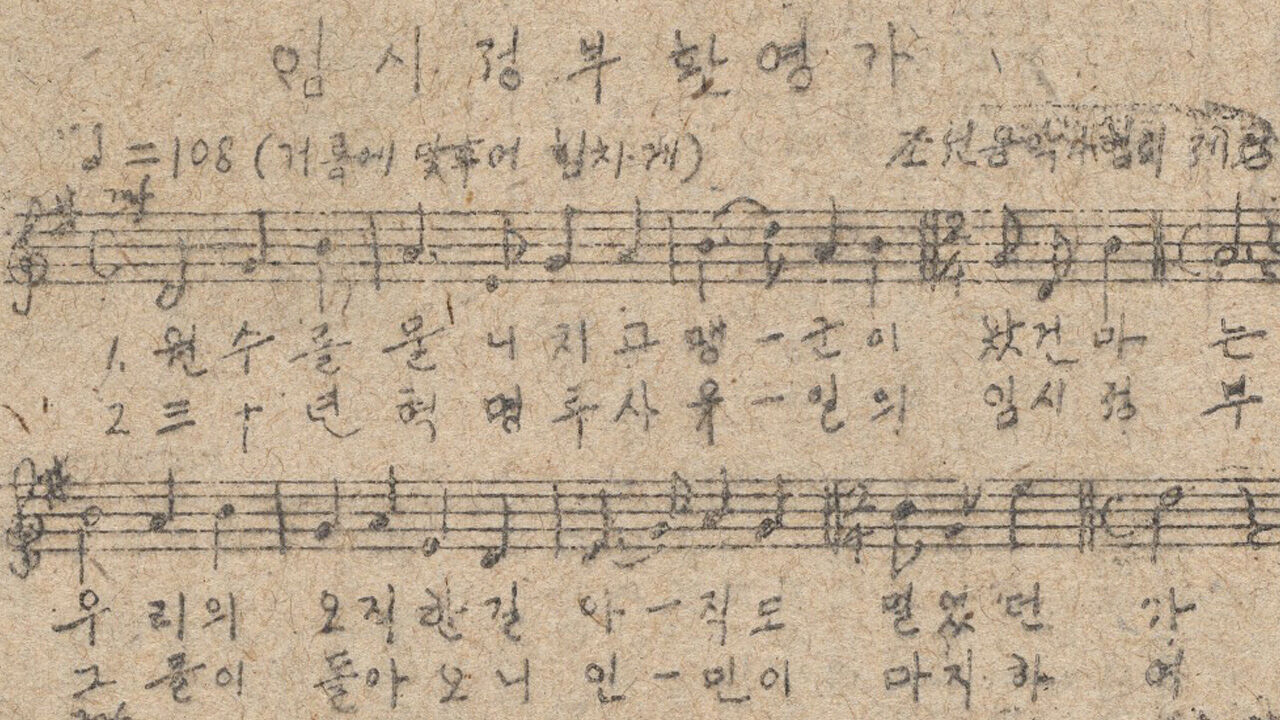 임시정부환영가
♩=108 (거름에 맞후어 힘차게)
조선음악가협회 제공
1. 원수를 물니지고 맹-군이 왔건마는
2 三十년 혁명투사 유-일의 임시정부
우리의 오직한길 아-직도 멀었던가
그들이 돌아오니 인-민이 마지하여